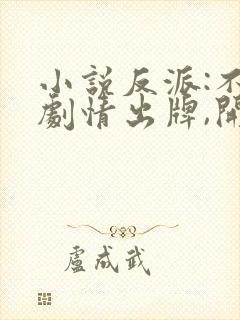 小說反派:不
劇情出牌,開
盧成武